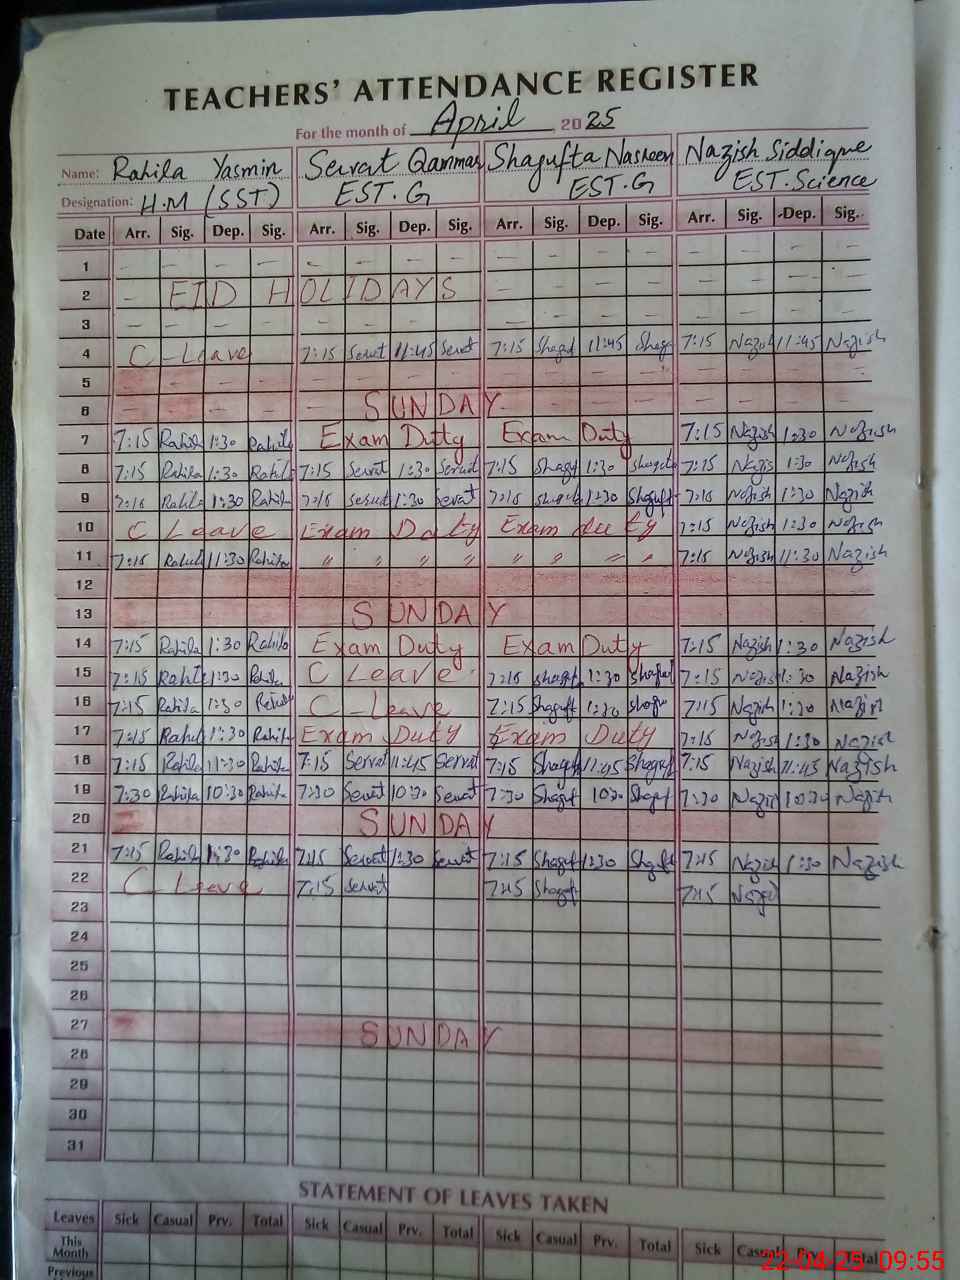 TEACHERS' ATTENDANCE REGISTER
For the month of April, 2025
Name: Rahila Yasmin Servat Qammar Shagufta Nasreen Nazish Siddique
Designation: H.M (SST) EST.G EST.G EST.Science
Date Arr. Sig. Dep. Sig. Arr. Sig. Dep. Sig. Arr. Sig. Dep. Sig. Arr. Sig. Dep. Sig.
1 – – – – – – – – – – – – – – – –
2 – EID HOLIDAYS – – – – – – – –
3 – – – – – – – – – – – – – – – –
4 C-Leave 7:15 Servat 11:45 Servat 7:15 Shaguf 11:45 Shag 7:15 Nazish 11:45 Nazish
5 – – – – – – – – – – – – – – –
6 – – – – – SUNDAY – – – – – – –
7 7:15 Rahila 1:30 Rahila Exam Duty Exam Duty 7:15 Nazish 1:30 Nazish
8 7:15 Rahila 1:30 Rahila 7:15 Servat 1:30 Servat 7:15 Shaguf 1:30 Shagufta 7:15 Nazis 1:30 Nazish
9 7:15 Rahila 1:30 Rahila 7:15 Servat 1:30 Servat 7:15 1:30 Shaguft 7:15 Nazish 1:30 Nazish
10 C Leave Exam Duty Exam duty 7:15 Nazish 1:30 Nazish
11 7:15 Rahila 11:30 Rahila " " " " " " " " 7:15 Nazish 11:30 Nazish
12
13 SUNDAY
14 7:15 Rahila 1:30 Rahila Exam Duty Exam Duty 7:15 Nazish 1:30 Nazish
15 7:15 Rahila 1:30 Rahila C Leave 7:15 Shaguf 1:30 Shaguf 7:15 Nazish 1:30 Nazish
16 7:15 Rahila 1:30 C-Leave 7:15 Shaguft 1:30 Shaguf 7:15 Nazish 1:30 Nazish
17 7:15 Rahila 1:30 Rahila Exam Duty Exam Duty 7:15 Nazish 1:30 Nazish
18 7:15 Rahila 11:30 Rahila 7:15 Servat 11:45 Servat 7:15 Shaguf 11:45 Shaguf 7:15 Nazish 11:45 Nazish
19 7:30 Rahila 10:30 Rahila 7:30 Servat 10:30 Servat 7:30 Shaguf 10:30 Shaguf 7:30 Nazish 10:30 Nazish
20 SUNDAY
21 7:15 Rahila 1:30 Rahila 7:15 Servat 1:30 Servat 7:15 Shaguft 1:30 Shaguft 7:15 Nazish 1:30 Nazish
22 C Leave 7:15 Servat 7:15 Shaguf 7:15 Nazish
23
24
25
26
27 SUNDAY
28
29
30
31
STATEMENT OF LEAVES TAKEN
Leaves Sick Casual Prv. Total Sick Casual Prv. Total Sick Casual Prv. Total Sick Casual Prv. Total
This Month
Previous
22-04-25 09:55